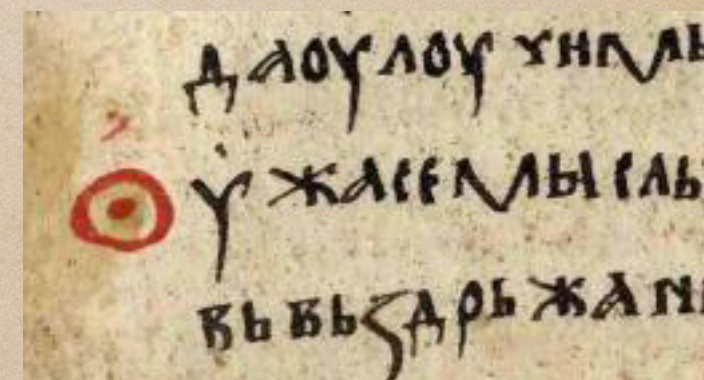 даоулоу чимь
Ꙩу жасе мысль
вь вьздрьжани